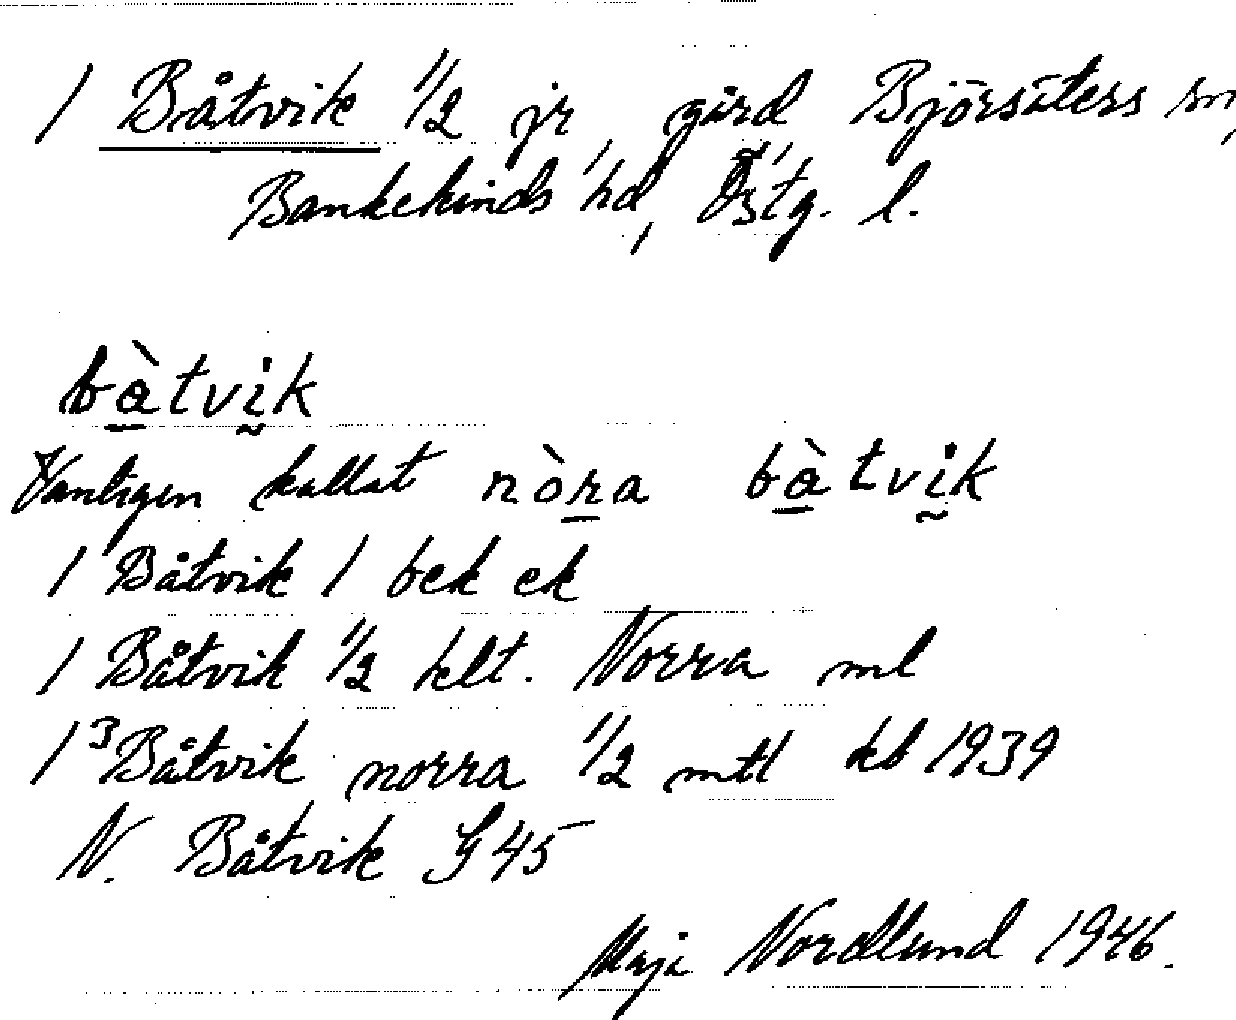 1 Båtvik 1/2 jr, gård Björsäters sn,
Bankekinds hd, Östg. l.
bàtvik
Vanligen kallat nòra bàtvik
1 Båtvik 1 bek ek
1 Båtvik 1/2 hlt. Norra ml
1 3 Båtvik norra 1/2 mtl kb 1939
N. Båtvik G 45
Maja Nordlund 1946.